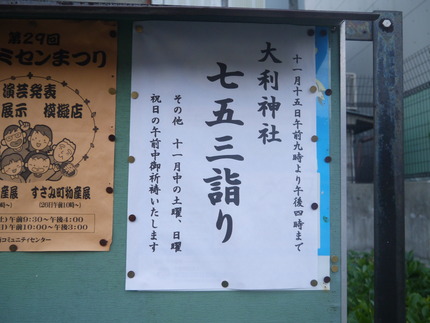 十一月十五日午前九時より午後四時まで
大利神社
七五三詣り
その他 十一月中の土曜、日曜
祝日の午前中御祈祷いたします
第29回
ミセンまつり
演芸発表
展示 模擬店
産展
すさみ町物産展
(20日午前10時〜)
午前9:30〜午後4:00
午前10:00〜午後3:00
コミュニティセンター